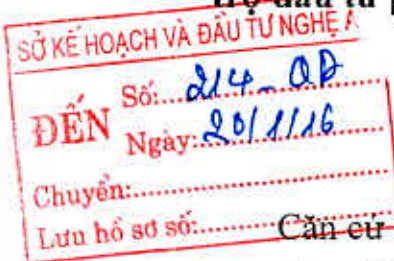 trợ đầu tư
SỞ KẾ HOẠCH VÀ ĐẦU TƯ NGHỆ A
ĐẾN
Số:.... 214 - QĐ
Ngày:.. 20/1/16
Chuyển:
Lưu hồ sơ số:
Căn cứ